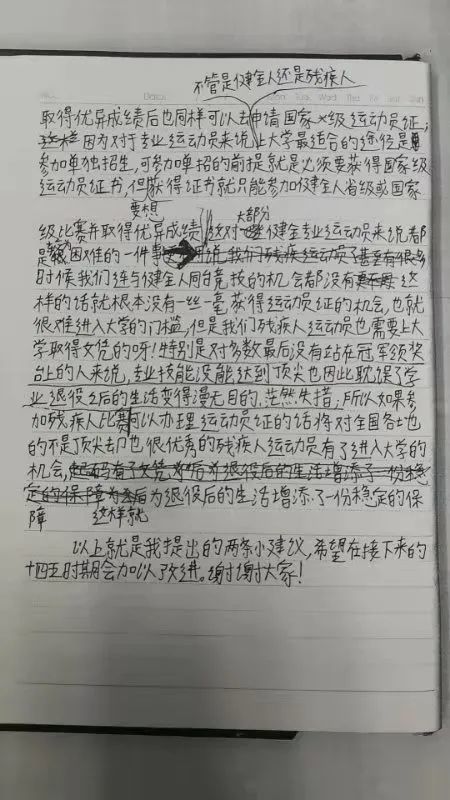 不管是健全人还是残疾人
取得优异成绩后也同样可以去申请国家X级运动员证；
这样因为对于专业运动员来说上大学最适合的途径是
参加单独招生，可参加单招的前提就是必须要获得国家级
运动员证书，但获得证书就只能参加健全人省级或国家
要想 大部分
级比赛并取得优异成绩，这对健全专业运动员来说都
是很困难的一件事，说我们残疾运动员了甚至有很多
时候我们连与健全人同台竞技的机会都没有，这
样的话就根本没有一丝一毫获得运动员证的机会，也就
很难进入大学的门槛，但是我们残疾人运动员也需要上大
学取得文凭的呀！特别是对多数最后没有站在冠军领奖
台上的人来说，专业技能没能达到顶尖也因此耽误了学
业，退役之后的生活变得漫无目的，茫然失措；所以如果参
加残疾人比赛可以办理运动员证的话将对全国各地
的不是顶尖却也很优秀的残疾人运动员有了进入大学的
机会，起码有了文凭为退役后的生活增添了一份稳
定的保障为退役后的生活增添了一份稳定的保
障 这样就
以上就是我提出的两条小建议，希望在接下来的
十四五时期会加以改进。谢谢大家！